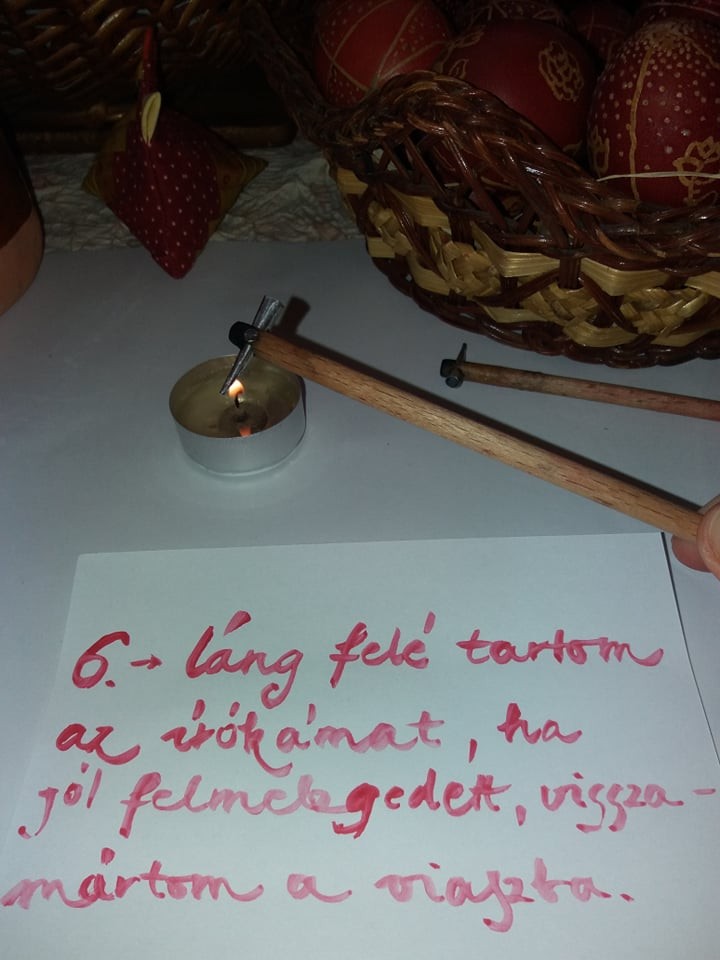 6.→ láng felé tartom
az írókámat, ha
jól felmelegedett, vissza-
mártom a viaszba.